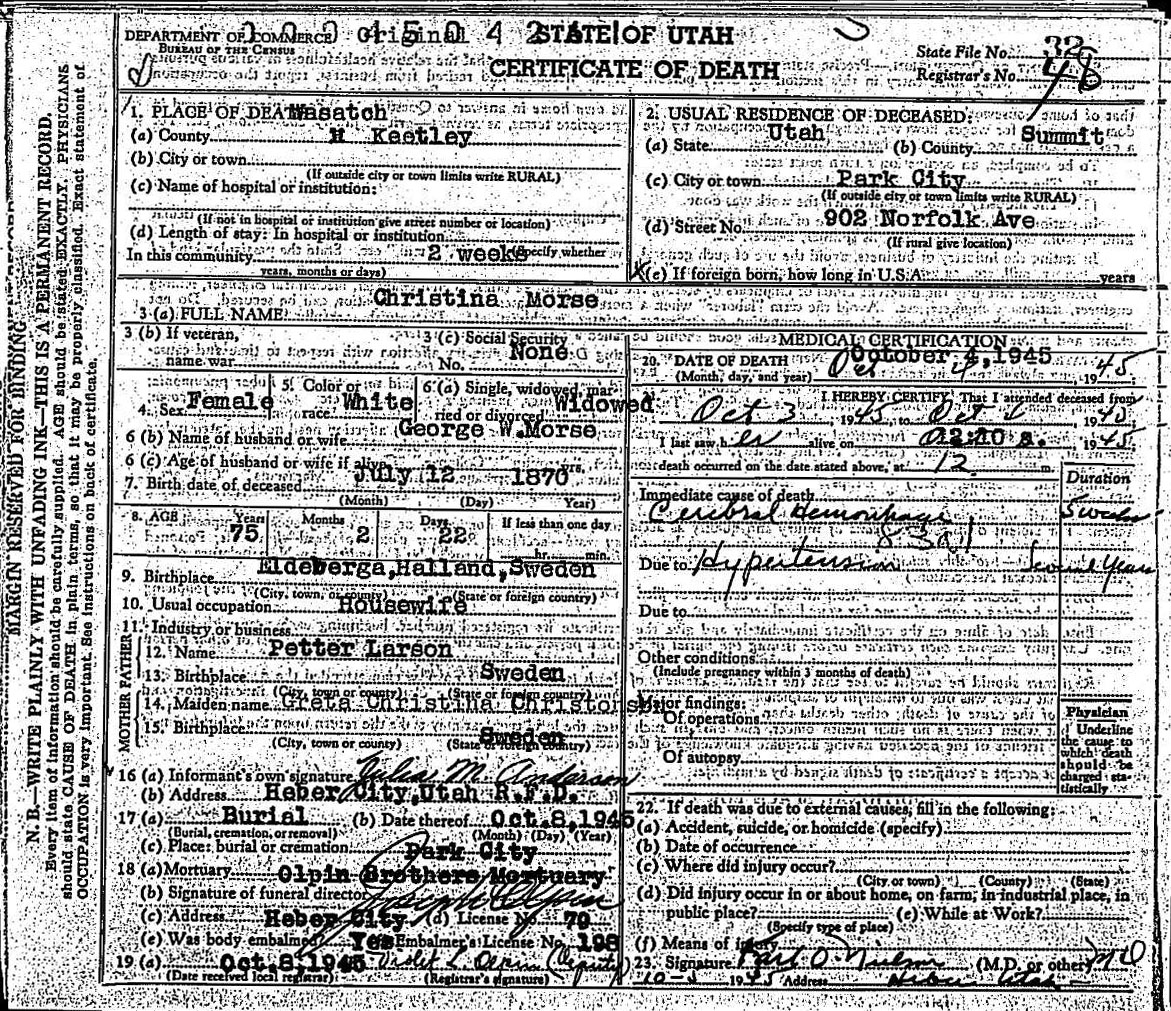 DEPARTMENT OF COMMERCE Original STATE OF UTAH
BUREAU OF THE CENSUS
CERTIFICATE OF DEATH
State File No. 325
Registrar's No. 48
MARGIN RESERVED FOR BINDING
N. B.—WRITE PLAINLY WITH UNFADING INK—THIS IS A PERMANENT RECORD.
Every item of information should be carefully supplied. AGE should be stated EXACTLY. PHYSICIANS
should state CAUSE OF DEATH in plain terms, so that it may be properly classified. Exact statement of
OCCUPATION is very important. See instructions on back of certificate.
1. PLACE OF DEATH: Wasatch
(a) County Keetley
(b) City or town
(If outside city or town limits write RURAL)
(c) Name of hospital or institution:
(If not in hospital or institution give street number or location)
(d) Length of stay: In hospital or institution
In this community 2 weeks (Specify whether
years, months or days)
2. USUAL RESIDENCE OF DECEASED:
(a) State Utah (b) County Summit
(c) City or town Park City
(If outside city or town limits write RURAL)
(d) Street No. 902 Norfolk Ave
(If rural give location)
X (e) If foreign born, how long in U.S.A. years
3 (a) FULL NAME Christina Morse
3 (b) If veteran, name war
3 (c) Social Security No. None
4. Sex Female 5. Color or race White 6 (a) Single, widowed, married or divorced Widowed
6 (b) Name of husband or wife George W. Morse
6 (c) Age of husband or wife if alive yrs.
7. Birth date of deceased July 12 1870
(Month) (Day) Year)
8. AGE Years 75 Months 2 Days 22 If less than one day
hr. min.
9. Birthplace Eldeberga, Halland, Sweden
(City, town, or county) (State or foreign country)
10. Usual occupation Housewife
11. Industry or business
FATHER
12. Name Petter Larson
13. Birthplace Sweden
(City, town or county) (State or foreign country)
MOTHER
14. Maiden name Greta Christina
15. Birthplace Sweden
(City, town or county) (State or foreign country)
16 (a) Informant's own signature Julia M. Anderson
(b) Address Heber City, Utah R.F.D.
17 (a) Burial (b) Date thereof Oct. 8, 1945
(Burial, cremation, or removal) (Month) (Day) (Year)
(c) Place: burial or cremation Park City
18 (a) Mortuary Olpin Brothers Mortuary
(b) Signature of funeral director Olpin
(c) Address Heber City (d) License No. 79
(e) Was body embalmed? Yes Embalmer's License No. 198
19 (a) Oct. 8, 1945 Violet L. Olpin (Deputy)
(Date received local registrar) (Registrar's signature)
MEDICAL CERTIFICATION
20. DATE OF DEATH October 4, 1945
(Month, day, and year) Oct 4, 1945
I HEREBY CERTIFY, That I attended deceased from
Oct 3, 1945, to Oct 4 1945
I last saw h er alive on 12:10 a. 1945
death occurred on the date stated above, at 12 m.
Duration
Immediate cause of death
Cerebral Hemorrhage
Due to Hypertension Several Years
Due to
Other conditions
(Include pregnancy within 3 months of death)
Major findings:
Of operations
Of autopsy
Physician
Underline
the cause to
which death
should be
charged sta-
tistically
22. If death was due to external causes, fill in the following:
(a) Accident, suicide, or homicide (specify)
(b) Date of occurrence
(c) Where did injury occur?
(City or town) (County) (State)
(d) Did injury occur in or about home, on farm, in industrial place, in
public place? (e) While at Work?
(Specify type of place)
(f) Means of injury
23. Signature O. (M.D. or other) MD
1945 Address Heber Utah